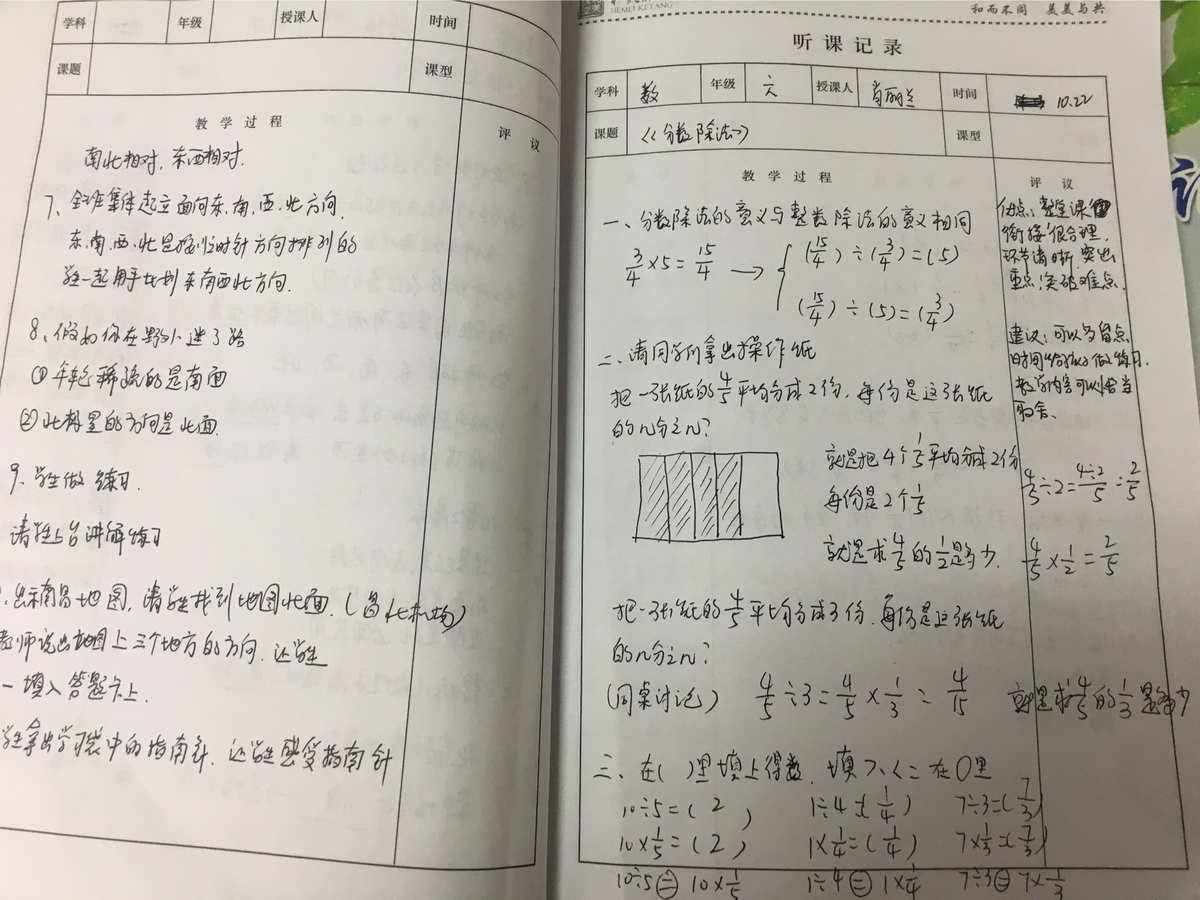 学科 年级 授课人 时间
课题 课型
教学过程 评议
南北相对，东西相对.
7、全班集体起立面向东、南、西、北方向.
东、南、西、北是按顺时针方向排列的
学生一起用手比划东南西北方向.
8、假如你在野外迷了路
① 年轮稀疏的是南面
② 北极星的方向是北面.
9、学生做练习.
请学生上台讲解练习
出示南昌地图，请学生找到地图北面.（昌北机场）
老师说出地图上三个地方的方向.让学生
一填入答题卡上.
学生拿出学习袋中的指南针.让学生感受指南针
HEMEI KETANG
和而不同 美美与共
听课记录
学科 数 年级 六 授课人 肖丽兰 时间 10.22
课题 《分数除法》 课型
教学过程 评议
一、分数除法的意义与整数除法的意义相同
3/4×5=15/4 → { (15/4)÷(3/4)=(5)
(15/4)÷(5)=(3/4)
二、请同学们拿出操作纸
把一张纸的4/5平均分成2份，每份是这张纸
的几分之几?
就是把4个1/5平均分成2份
每份是2个1/5
就是求4/5的1/2是多少.
把一张纸的4/5平均分成3份.每份是这张纸
的几分之几?
(同桌讨论) 4/5÷3=4/5×1/3=4/15 就是求4/5的1/3是多少
三、在( )里填上得数.填>、<、= 在○里
10÷5=(2) 1÷4=(1/4) 7÷3=(7/3)
10×1/5=(2) 1×1/4=(1/4) 7×1/3=(7/3)
10÷5=10×1/5 1÷4=1×1/4 7÷3=7×1/3
优点：整堂课
衔接很合理，
环节清晰，突出
重点，突破难点.
建议：可以多留点
时间给孩子做练习.
教学内容可以恰当
取舍.
4/5÷2=4÷2/5=2/5
4/5×1/2=2/5